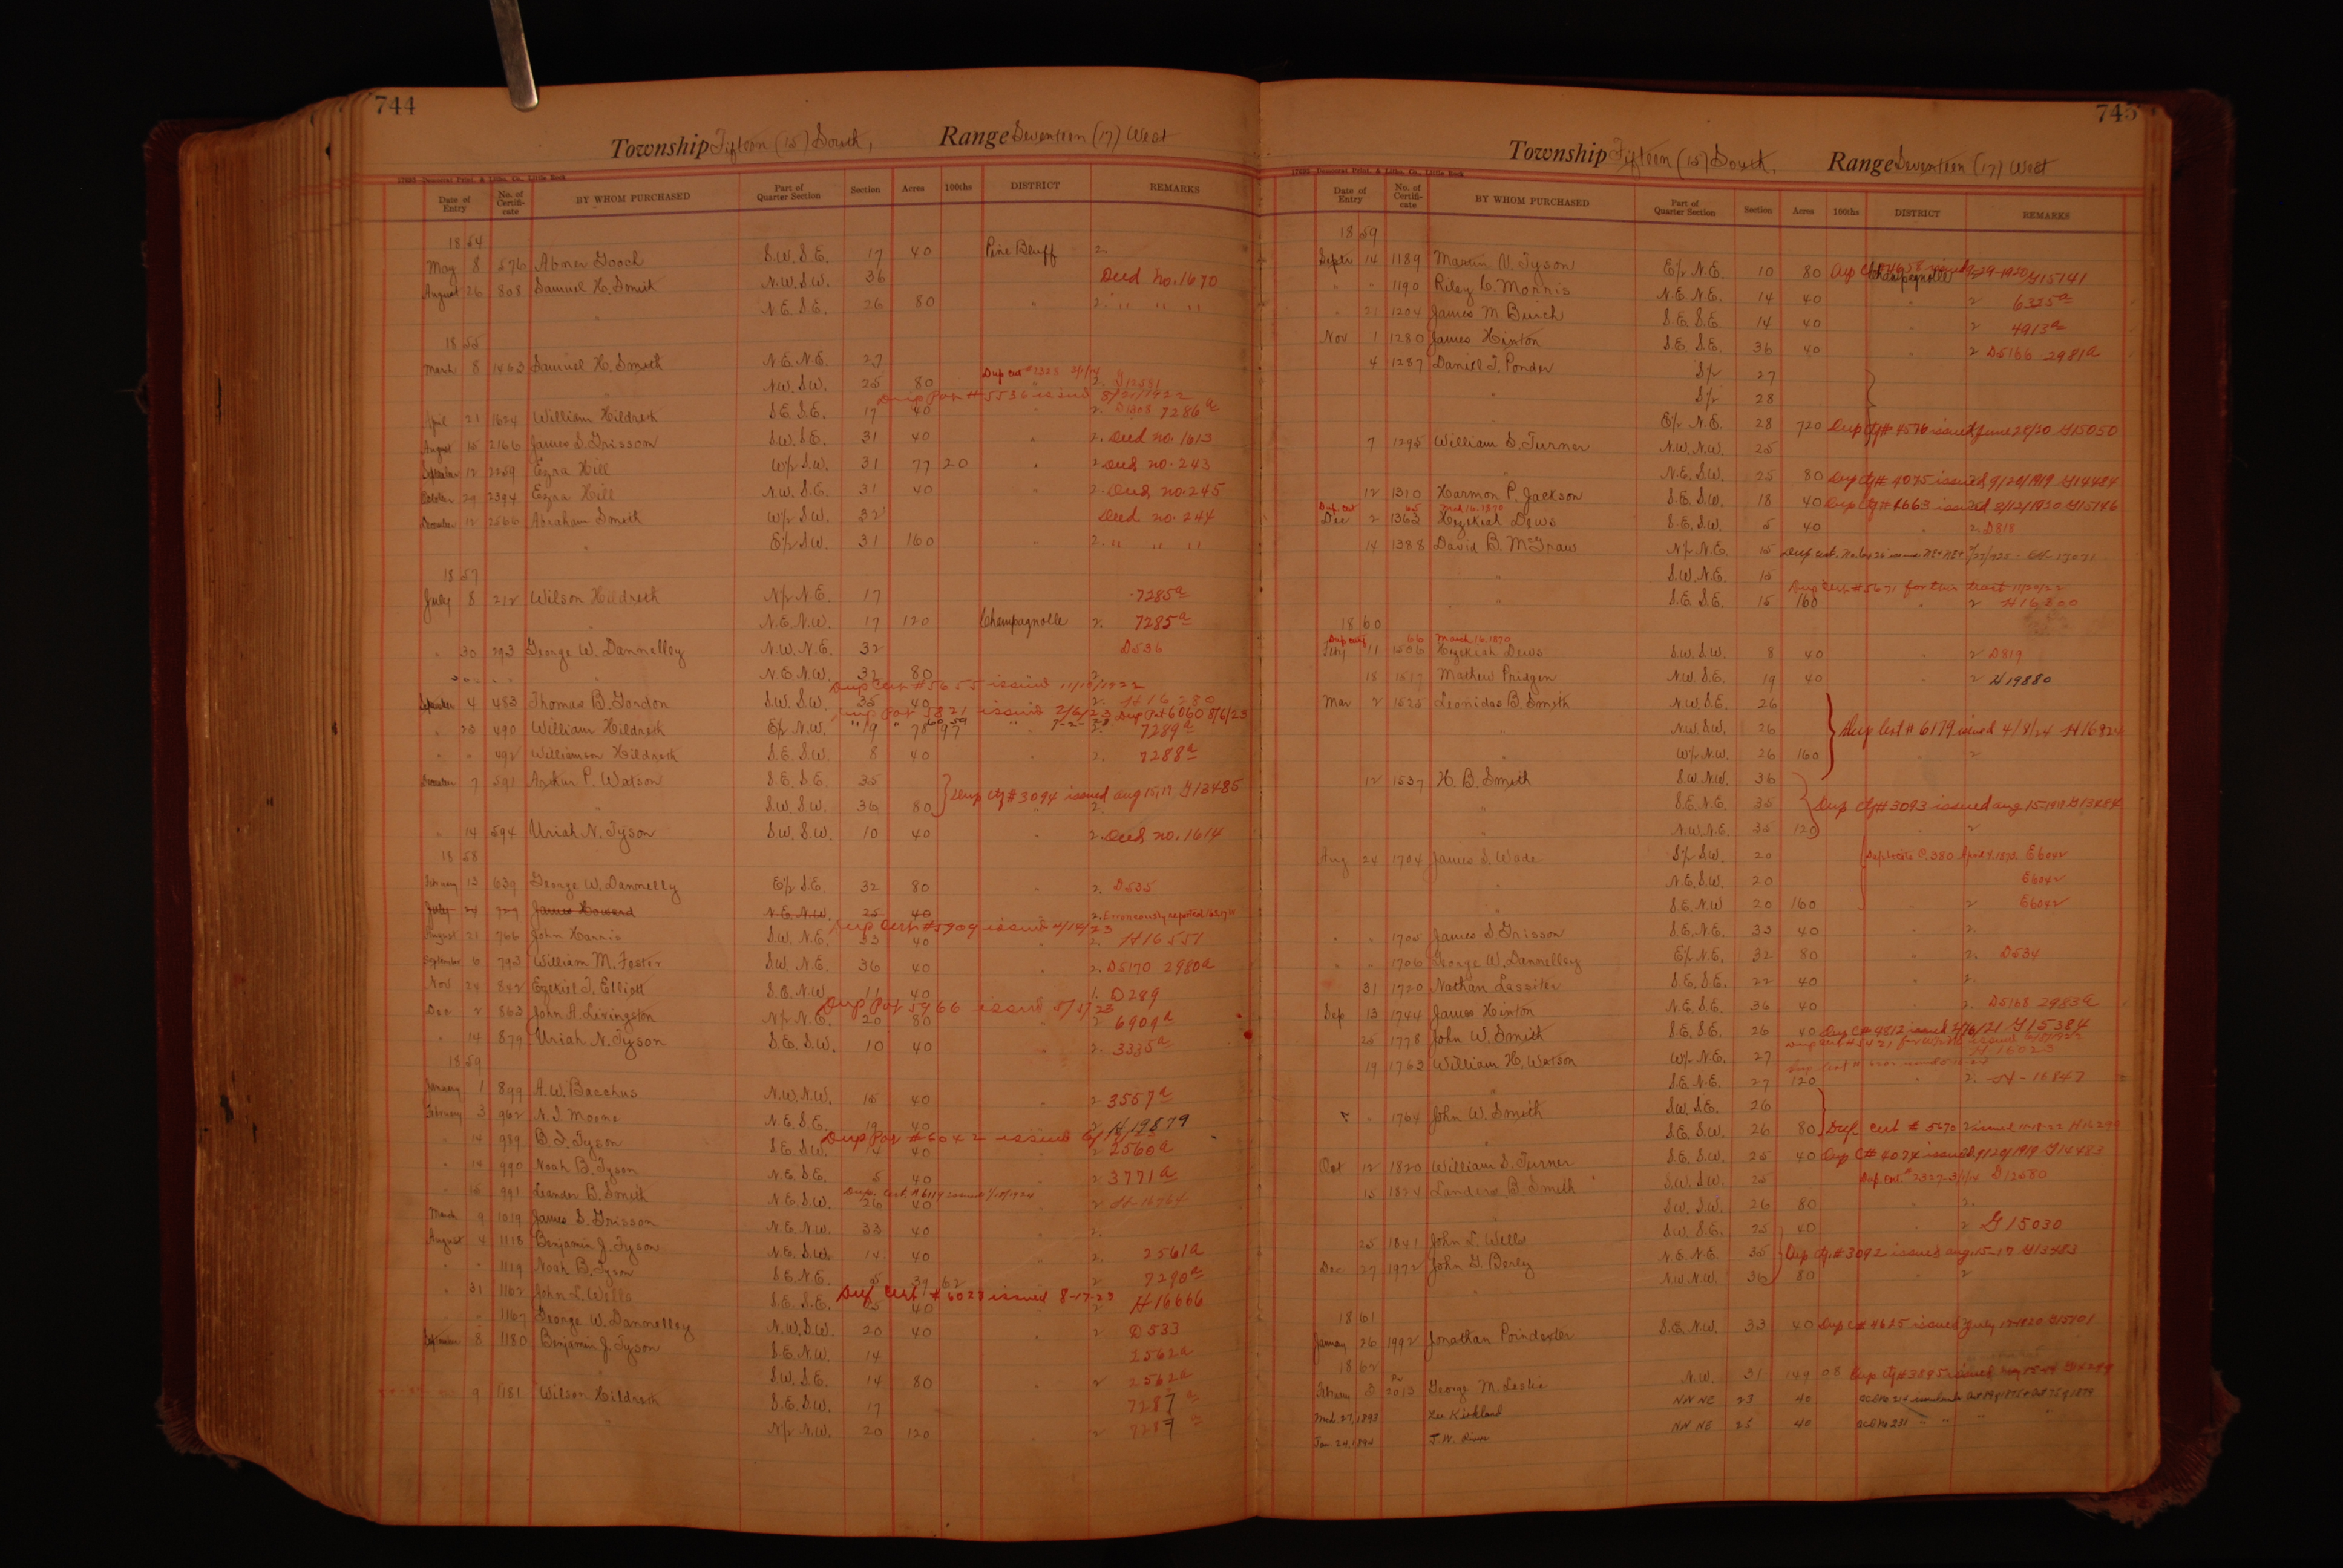 744
Township Fifteen (15) South, Range Seventeen (17) West
17693 Democrat Print. & Litho. Co., Little Rock
Date of Entry No. of Certifi-cate BY WHOM PURCHASED Part of Quarter Section Section Acres 100ths DISTRICT REMARKS
1854
May 8 576 Abner Gooch S.W. S.E. 17 40 Pine Bluff 2.
August 26 808 Samuel H. Smith N.W. S.W. 36 Deed No. 1670
" N.E. S.E. 26 80 " 2. " " "
1855
March 8 1463 Samuel H. Smith N.E. N.E. 27
" N.W. S.W. 25 80 Dup Cert # 2328 " 2. D12581
Dup Pat # 5536 issued 8/21/1922
April 21 1624 William Hildreth S.E. S.E. 17 40 2. 7286a
August 15 2166 James S. Grisson S.W. S.E. 31 40 " 2. Deed no. 1613
September 12 2259 Ezra Hill W/2 S.W. 31 77 20 " 2 Deed no. 243
October 29 2394 Ezra Hill N.W. S.E. 31 40 " 2. Deed no. 245
December 12 2566 Abraham Smith W/2 S.W. 32 Deed no. 244
" E/2 S.W. 31 160 " 2. " " "
1857
July 8 212 Wilson Hildreth N/2 N.E. 17 7285a
" N.E. N.W. 17 120 Champagnolle 2. 7285a
" 30 293 George W. Dannelley N.W. N.E. 32 D536
" N.E. N.W. 32 80 2.
Dup Cert # 5655 issued 11/10/1922
September 4 483 Thomas B. Gordon S.W. S.W. 35 40 2. H16280
Dup Pat 5821 issued 2/6/23 Dup Pat 6060 8/6/23
" 23 490 William Hildreth E/2 N.W. 19 78 97 2. 7289a
" " 492 Williamson Hildreth S.E. S.W. 8 40 " 2. 7288a
December 7 591 Arthur P. Watson S.E. S.E. 35
" S.W. S.W. 36 80 Dup Ctf # 3094 issued Aug 15, 17 G13485
" 14 594 Uriah N. Tyson S.W. S.W. 10 40 " 2. Deed no. 1614
1858
February 13 639 George W. Dannelly E/2 S.E. 32 80 " 2. D535
July 24 727 James Howard N.E. N.W. 25 40 2. Erroneously reported
Dup Cert #5904 issued 4/14/23
August 21 766 John Harris S.W. N.E. 33 40 " 2. H16551
September 6 793 William M. Foster S.W. N.E. 36 40 " 2. D5170 2980a
Nov 24 842 Ezekiel T. Elliott S.E. N.W. 11 40 " 1. D289
Dup Pat 5966 issued 5/5/23
Dec 2 863 John A. Livingston N/2 N.E. 20 80 " 2 6909a
" 14 879 Uriah N. Tyson S.E. S.W. 10 40 " 2. 3335a
1859
January 1 899 A. W. Bacchus N.W. N.W. 15 40 " 2 3557a
February 3 962 N. T. Moore N.E. S.E. 19 40 2 H19879
Dup Pat #6042 issued
" 14 989 B. J. Tyson S.E. S.W. 14 40 " 2 2560a
" 14 990 Noah B. Tyson N.E. S.E. 5 40 " 2 3771a
" 15 991 Leander B. Smith N.E. S.W. 26 40 " 2 H-16764
March 9 1019 James S. Grisson N.E. N.W. 33 40 " 2.
August 4 1118 Benjamin J. Tyson N.E. S.W. 14 40 " 2. 2561a
" " 1119 Noah B. Tyson S.E. N.E. 5 39 62 " 2 7290a
Dup Cert # 6023 issued 8-17-23
" 31 1162 John L. Wells S.E. S.E. 25 40 2 H16666
" " 1167 George W. Dannelley N.W. S.W. 20 40 " 2 D533
September 8 1180 Benjamin J. Tyson S.E. N.W. 14 2562a
" S.W. S.E. 14 80 " 2 2562a
" 9 1181 Wilson Hildreth S.E. S.W. 17 7287a
" N/2 N.W. 20 120 " 2 7287a
745
Township Fifteen (15) South, Range Seventeen (17) West
17693 Democrat Print. & Litho. Co., Little Rock
Date of Entry No. of Certifi-cate BY WHOM PURCHASED Part of Quarter Section Section Acres 100ths DISTRICT REMARKS
1859
Septr 14 1189 Martin V. Tyson E/2 N.E. 10 80 Champagnolle G15141
" " 1190 Riley C. Morris N.E. N.E. 14 40 " 2 6325a
" 21 1204 James M. Burch S.E. S.E. 14 40 " 2 4913a
Nov 1 1280 James Hinton S.E. S.E. 36 40 " 2 D5166 2981a
4 1287 Daniel T. Ponder S/2 27
" S/2 28
E/2 N.E. 28 720 Dup Ctf # 4576 issued June 28/20 G15050
7 1295 William S. Turner N.W. N.W. 25
" N.E. S.W. 25 80 Dup Ctf # 4075 issued 9/20/1919 G14484
12 1310 Harmon P. Jackson S.E. S.W. 18 40 Dup Ctf # 4663 issued 8/12/1920 G15146
Dup. Cert 65 Mch 16, 1870
Dec 2 1363 Hezekiah Dews S.E. S.W. 5 40 " 2. D818
14 1388 David B. McGraw N/2 N.E. 15
" S.W. N.E. 15
Dup Cert #5671 for this tract 11/20/22
" S.E. S.E. 15 160 " 2 H16300
1860
Dup Cert 66 March 16, 1870
11 1506 Hezekiah Dews S.W. S.W. 8 40 " 2 D819
18 1517 Mathew Pridgen N.W. S.E. 19 40 " 2 H19880
Mar 2 1525 Leonidas B. Smith N.W. S.E. 26
" N.W. S.W. 26 Dup Cert # 6179 issued 4/8/24 H16824
" W/2 N.W. 26 160 " 2
12 1537 H. B. Smith S.W. N.W. 36
" S.E. N.E. 35 Dup Ctf # 3093 issued Aug 15-1917 G13484
" N.W. N.E. 35 120 " 2
Aug 24 1704 James S. Wade S/2 S.W. 20 Duplicate C. 380 April 4, 1873. E6042
" N.E. S.W. 20 E6042
" S.E. N.W. 20 160 " 2 E6042
" " 1705 James S. Grisson S.E. N.E. 33 40 " 2.
" " 1706 George W. Dannelley E/2 N.E. 32 80 " 2. D534
31 1720 Nathan Lassiter S.E. S.E. 22 40 " 2.
Sep 13 1744 James Hinton N.E. S.E. 36 40 " 2. D5168 2983a
25 1778 John W. Smith S.E. S.E. 26 40 Dup C# 4812 issued 2/16/21 G15384
19 1763 William H. Watson W/2 N.E. 27 H16023
" S.E. N.E. 27 120 " 2. H-16847
" 1764 John W. Smith S.W. S.E. 26
" S.E. S.W. 26 80 Dup cert # 5670 issued 11-18-22
Oct 12 1820 William S. Turner S.E. S.W. 25 40 Dup C# 4074 issued 9/20/1919 G14483
15 1824 Landers B. Smith S.W. S.W. 25 Dup. Cert. # 2327 D12580
S.W. S.W. 26 80 " 2.
25 1841 John L. Wells S.W. S.E. 25 40 " 2 G15030
Dec 27 1972 John G. Berly N.E. N.E. 35 Dup Ctf. # 3092 issued Aug. 15-17 G13483
" N.W. N.W. 36 80 " 2
1861
January 26 1992 Jonathan Poindexter S.E. N.W. 33 40 Dup C# 4625 issued July
1862
February 3 2013 George M. Leslie N.W. 31 149 08 Dup Ctf # 3895 issued
Mch 27, 1893 Lee Kirkland NW NE 23 40
Jan 24, 1894 J. W. NW NE 25 40